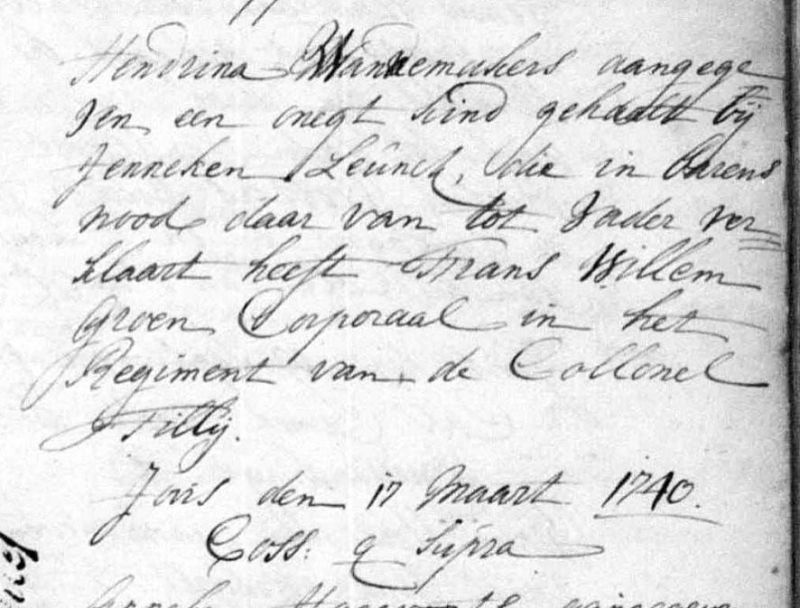 Hendrina Wannemakers aangege
ven een onegt kind gehaalt bij
Jenneken Leúnck, die in Barens
nood daar van tot Vader ver=
klaart heeft Frans Willem
Groen Corporaal in het
Regiment van de Collonel
Tilly.
Jovis den 17 Maart 1740.
Coss: q Súpra